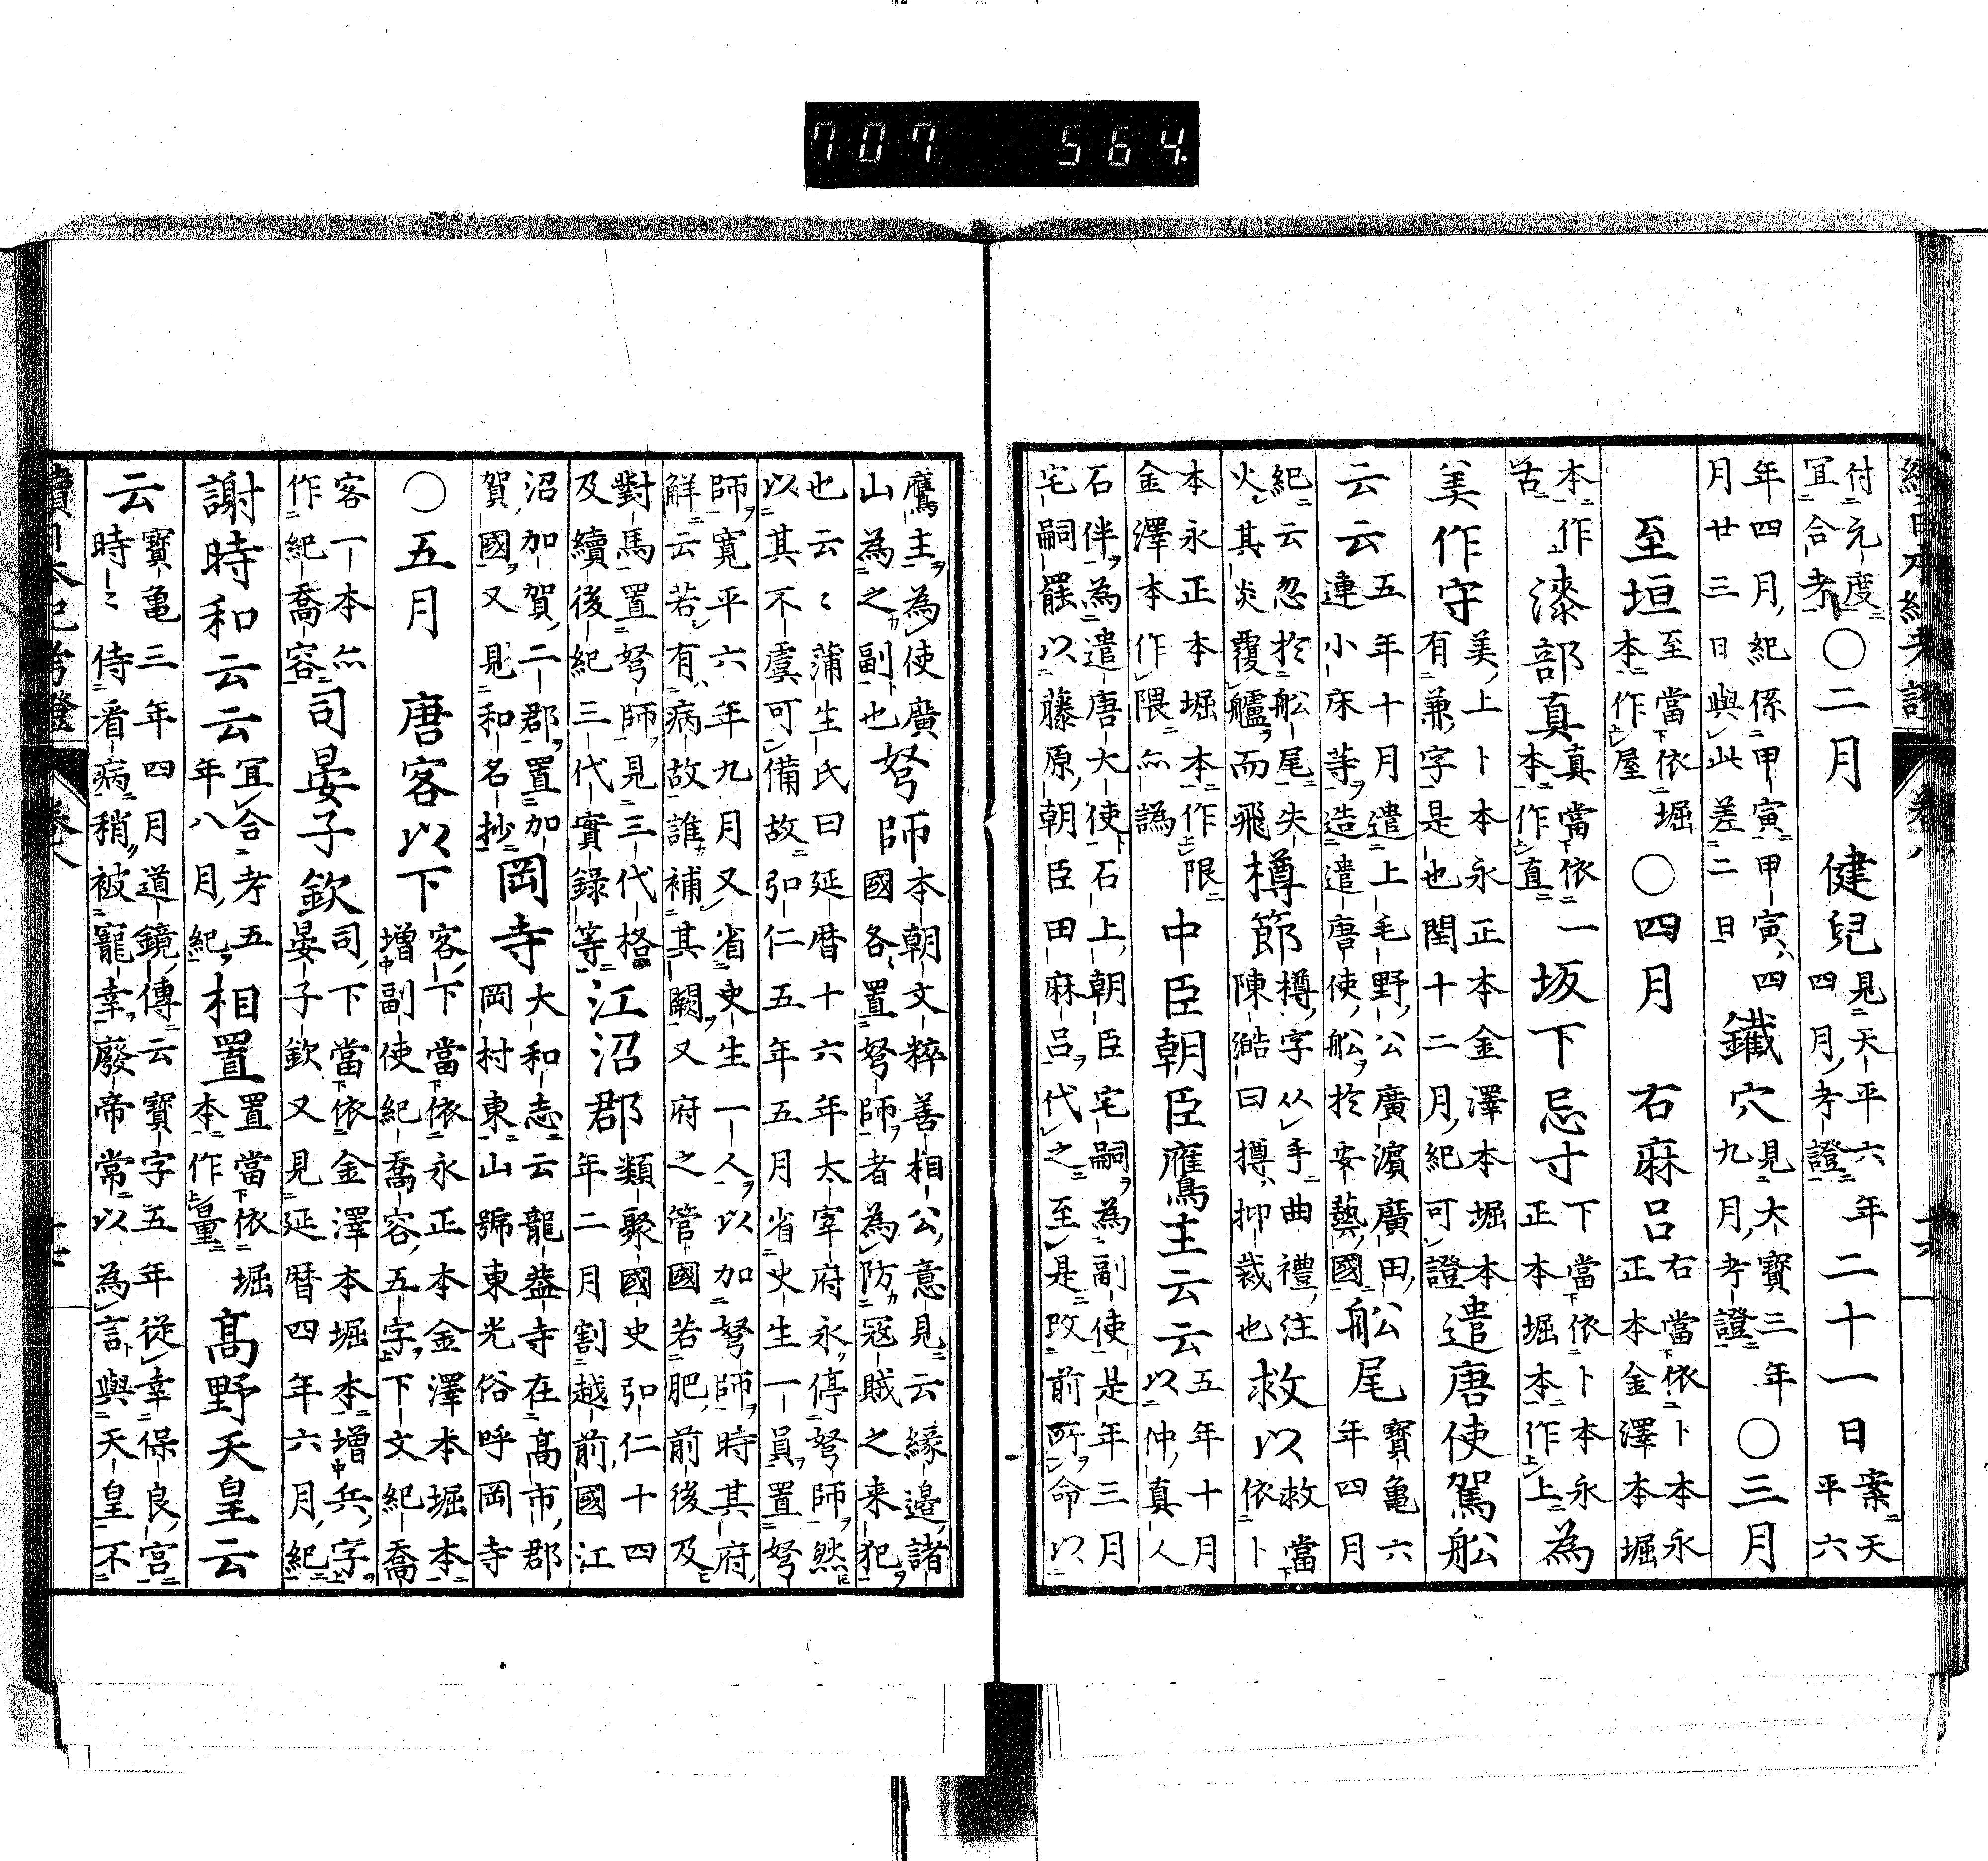 707 564
續日本紀考證 卷八 十六
付元度
冝合考 〇二月 健兒 見天平六年二十一日案天
四月考證 平六
年四月紀係甲寅甲寅四
月廿三日與此差二日 鐵穴 見大寶三年
九月考證 〇三月
至垣 至當依堀
本作屋 〇四月 右麻呂 右當依卜本永
正本金澤本堀
本作
苫 漆部真 真當依
本作直 一 坂下忌寸 下當依卜本永
正本堀本作上 為
美作守 美上卜本永正本金澤本堀本
有兼字是也閏十二月紀可證 遣唐使駕舩
云云 五年十月遣上毛野公廣濵廣田
連小床等造遣唐使舩於安藝國 舩尾 寶亀六
年四月
紀云忽於舩尾失
火其炎覆艫而飛 樽節 樽字从手曲禮注
陳澔曰撙抑裁也 救以 救當
依卜
本永正本本堀本作限
金澤本作隈亦譌 中臣朝臣鷹主云云 五年十月
以仲真人
石伴為遣唐大使石上朝臣宅嗣為副使是年三月
宅嗣罷以藤原朝臣田麻呂代之至是改前所命以
鷹主為使廣
山為之副也 弩師 本朝文粹善相公意見云緣邉諸
國各置弩師者為防冦賊之来犯
也云〻蒲生氏曰延暦十六年太宰府永停弩師然
以其不虞可備故弘仁五年五月省史生一員置弩
師寛平六年九月又省史生一人以加弩師時其府
解云若有病故誰補其闕又府之管國若肥前後及
對馬置弩師見三代格
及續後紀三代實錄等 江沼郡 類聚國史弘仁十四
年二月割越前國江
沼加賀二郡置加
賀國又見和名抄 岡寺 大和志云龍葢寺在髙市郡
岡村東山號東光俗呼岡寺
〇五月 唐客以下 客下當依永正本金澤本堀本
増副使紀喬容五字下文紀喬
客一本亦
作紀喬容 司晏子欽 司下當依金澤本堀本増兵字
晏子欽又見延暦四年六月紀
謝時和云云 冝合考五
年八月紀 相置 置當依堀
本作量 髙野天皇云
云 寶亀三年四月道鏡傳云寶字五年從幸保良宮
時〻侍看病稍被寵幸廢帝常以為言與天皇不
續日本紀考證 卷八